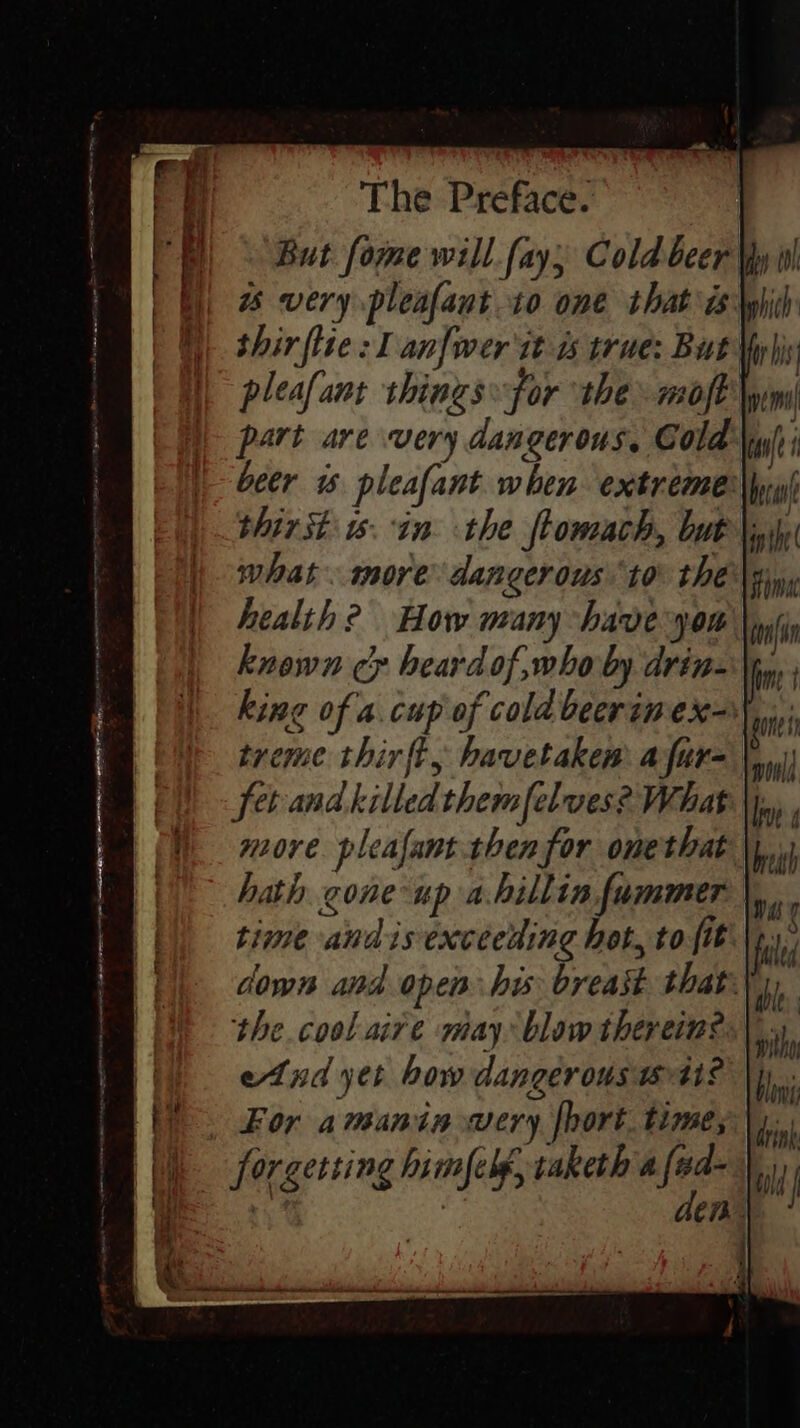 The Preface.
But ſome will ſay, Cold beer
is very pleaſant to one that is
thirſtie: I anſwer it is true: But
pleaſant things for the moſt
part are very dangerous. Cold
beer is pleaſant when extreme
thirst is in the ſtomach, but
what more dangerous to the
health? How many have you
known & heard of, who by drin-
king of a cup of cold beer in ex-
treme thirſt, have taken a ſur-
fet and killed themſelves? What
more pleaſant then for one that
hath gone up a hill in ſummer
time and is exceeding hot, to ſit
down and open his breast that
the cool aire may blow therein?
And yet how dangerous is it?
For a man in very ſhort time,
forgetting himſelf, taketh a ſud-
den